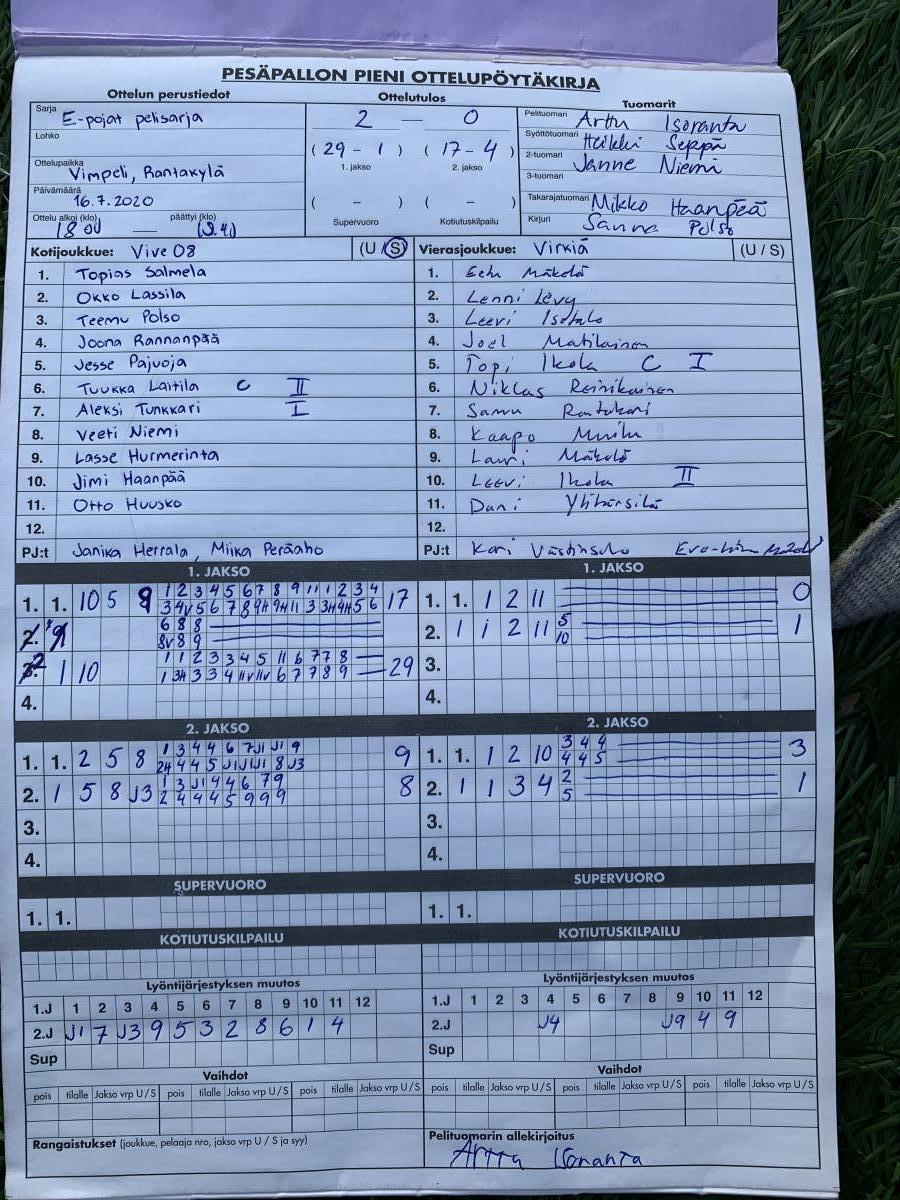 PESÄPALLON PIENI OTTELUPÖYTÄKIRJA
Ottelun perustiedot
Ottelutulos
Tuomarit
Sarja E-pojat pelisarja
Lohko
Ottelupaikka Vimpeli, Rantakylä
Päivämäärä 16.7.2020
Ottelu alkoi (klo) 18 00 — päättyi (klo)
2 — 0
( 29 - 1 ) ( 17 - 4 )
1. jakso 2. jakso
( - ) ( - )
Supervuoro Kotiutuskilpailu
Pelituomari Arttu Isoranta
Syöttötuomari Heikki Seppä
2-tuomari Janne Niemi
3-tuomari
Takarajatuomari Mikko Haanpää
Kirjuri Sanna Polso
Kotijoukkue: Vive 08 (U / S)
1. Topias Salmela
2. Okko Lassila
3. Teemu Polso
4. Joona Rannanpää
5. Jesse Pajuoja
6. Tuukka Laitila C II
7. Aleksi Tunkkari I
8. Veeti Niemi
9. Lasse Hurmerinta
10. Jimi Haanpää
11. Otto Huusko
12.
PJ:t Janika Herrala, Miika Peräaho
Vierasjoukkue: Virkiä (U / S)
1. Eetu Mäkelä
2. Lenni Levy
3. Leevi Isotalo
4. Joel Matilainen
5. Topi Ikola C I
6. Niklas Reinikainen
7. Samu Rantakari
8. Kaapo
9. Lauri Mäkelä
10. Leevi Ikola II
11. Dani
12.
PJ:t Kari
1. JAKSO
1. 1. 10 5 9 17
1 2 3 4 5 6 7 8 9 11 1 2 3 4
6 8 8
8v 8 9
1 10 29
1 1 2 3 3 4 5 11 6 7 7 8
4.
1. JAKSO
1. 1. 1 2 11 0
2. 1 1 2 11 5 1
10
3.
4.
2. JAKSO
1. 1. 2 5 8 9
1 3 4 4 6 7 J1 J1 9
2. 1 5 8 J3 8
1 3 J1 4 4 6 7 9
2 4 4 4 5 9 9 9
3.
4.
2. JAKSO
1. 1. 1 2 10 3 4 4 3
4 4 5
2. 1 1 3 4 2 1
5
3.
4.
SUPERVUORO
1. 1.
SUPERVUORO
1. 1.
KOTIUTUSKILPAILU
KOTIUTUSKILPAILU
Lyöntijärjestyksen muutos
1.J 1 2 3 4 5 6 7 8 9 10 11 12
2.J J1 7 J3 9 5 3 2 8 6 1 4
Sup
Lyöntijärjestyksen muutos
1.J 1 2 3 4 5 6 7 8 9 10 11 12
2.J J4 J9 4 9
Sup
Vaihdot
pois tilalle Jakso vrp U / S pois tilalle Jakso vrp U / S pois tilalle Jakso vrp U / S
Vaihdot
pois tilalle Jakso vrp U / S pois tilalle Jakso vrp U / S pois tilalle Jakso vrp U / S
Rangaistukset (joukkue, pelaaja nro, jakso vrp U / S ja syy)
Pelituomarin allekirjoitus
Arttu Isoranta